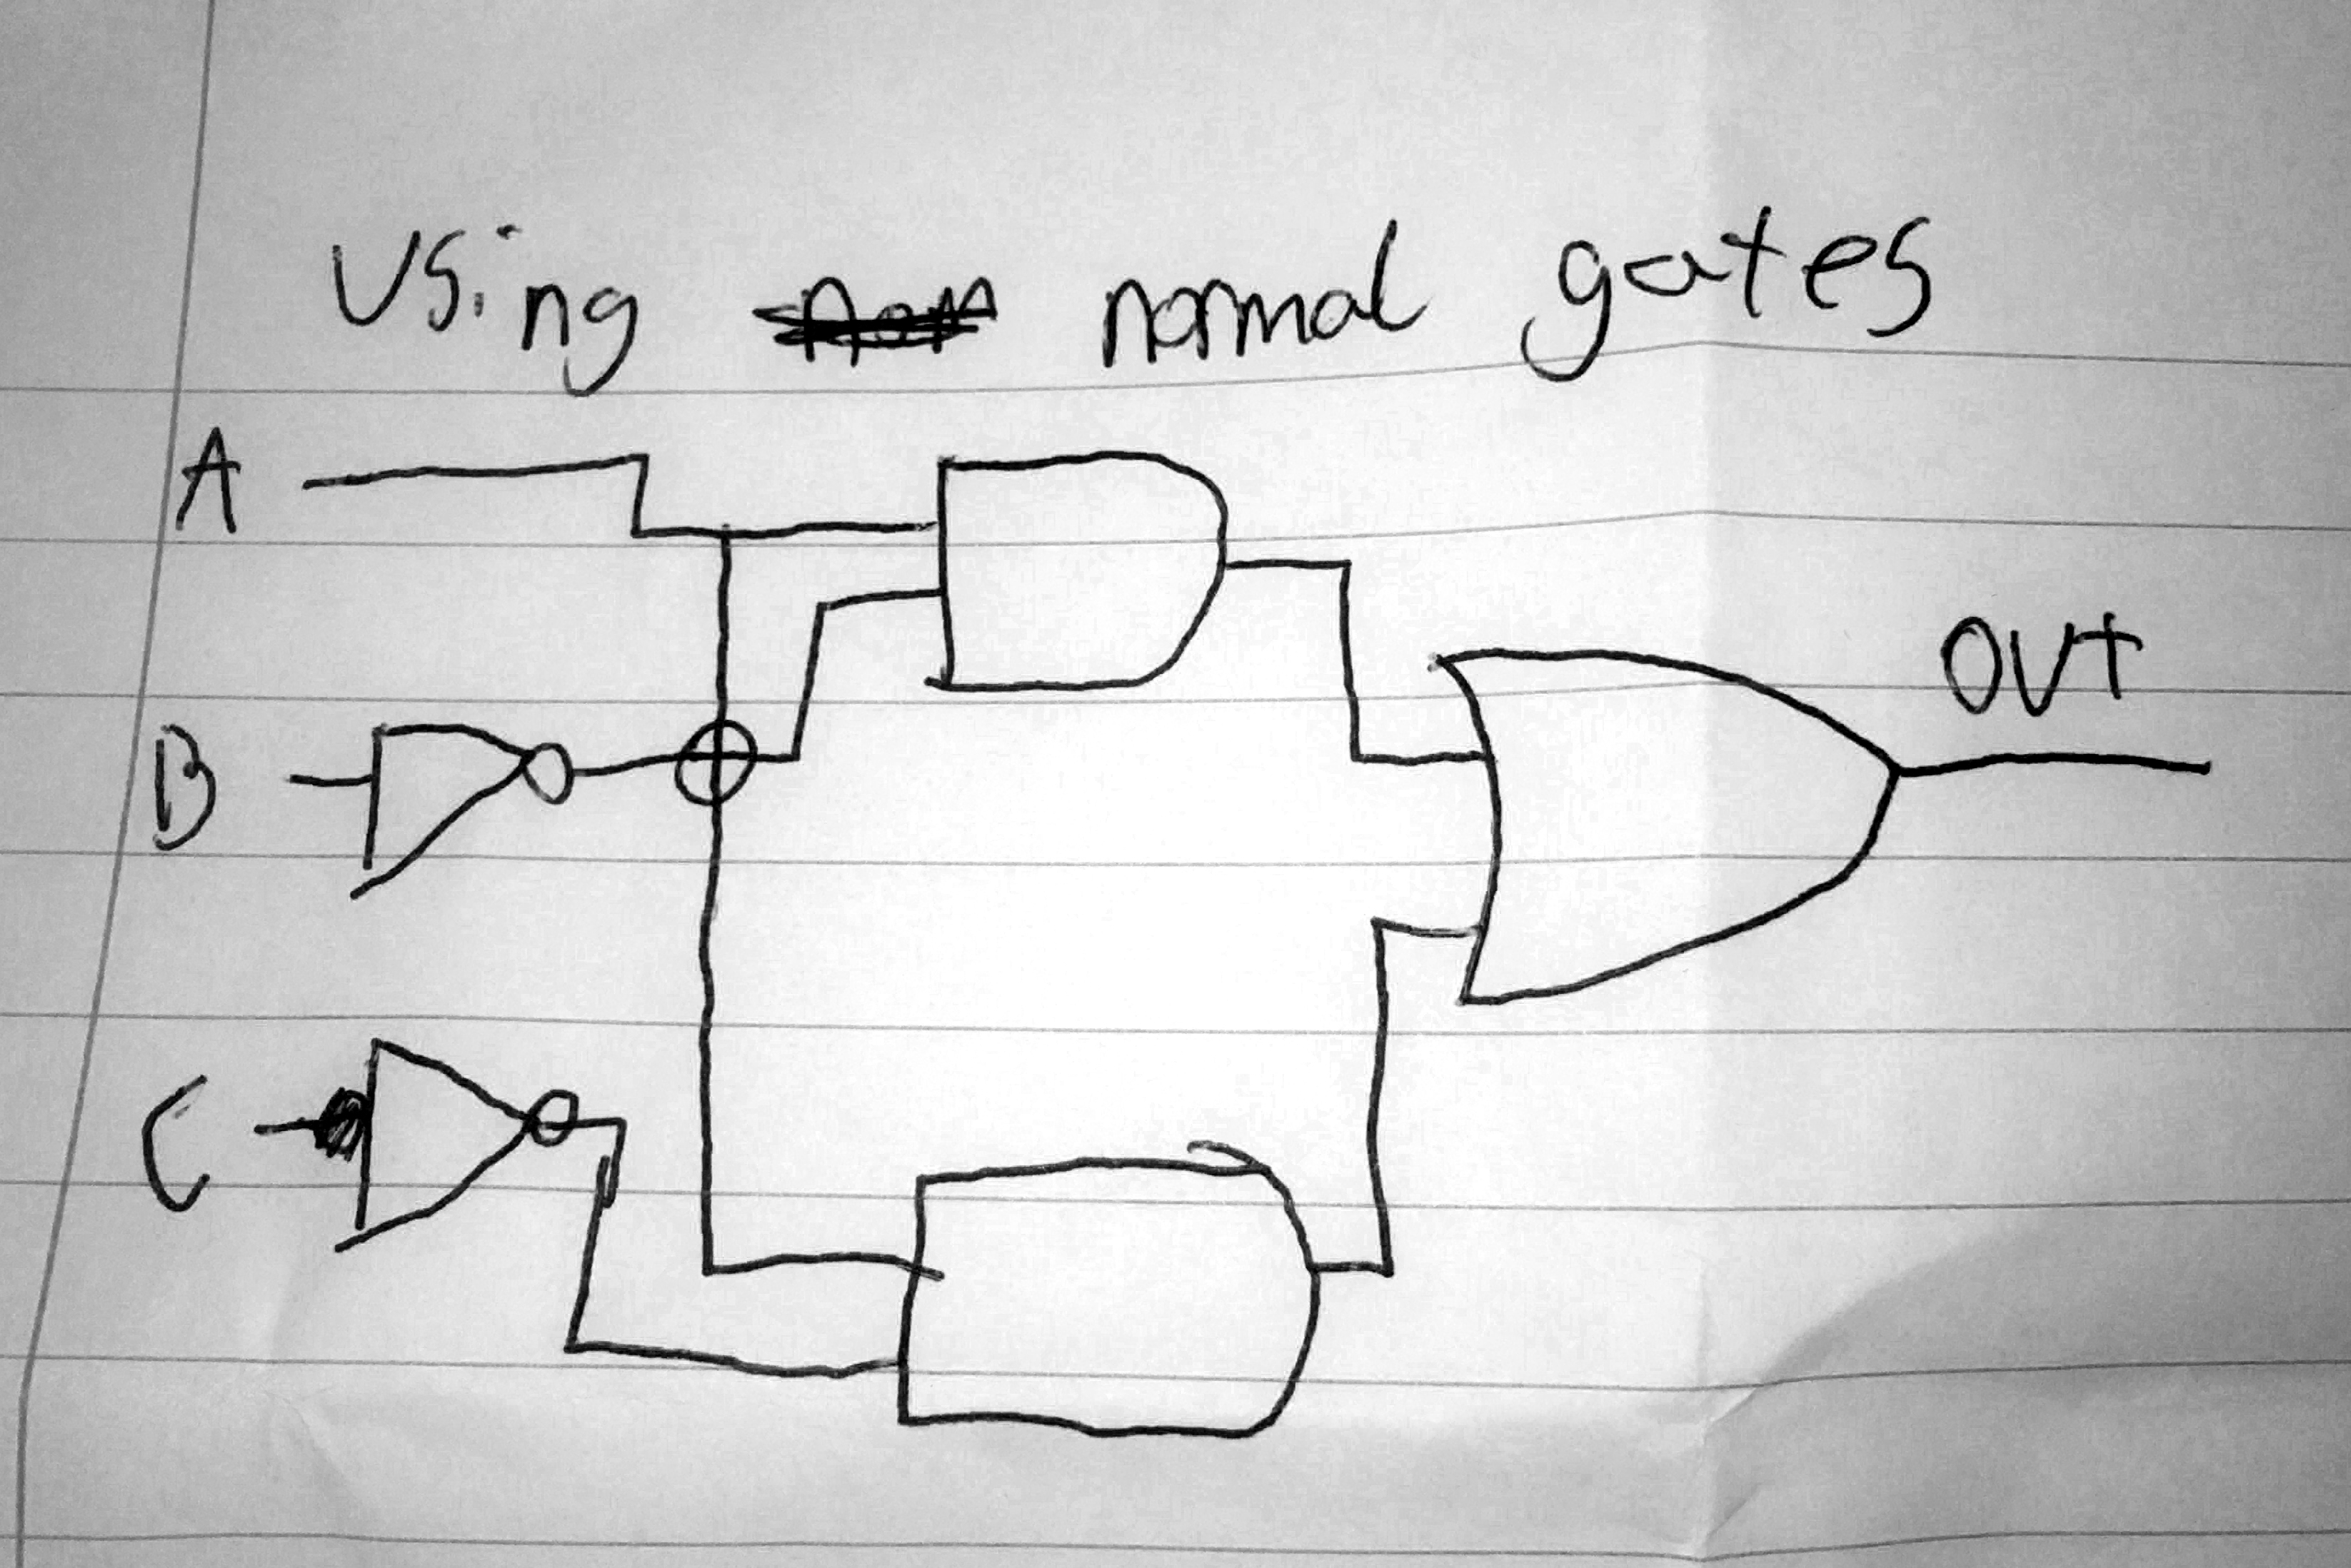 Using normal gates
A
OUT
B
C